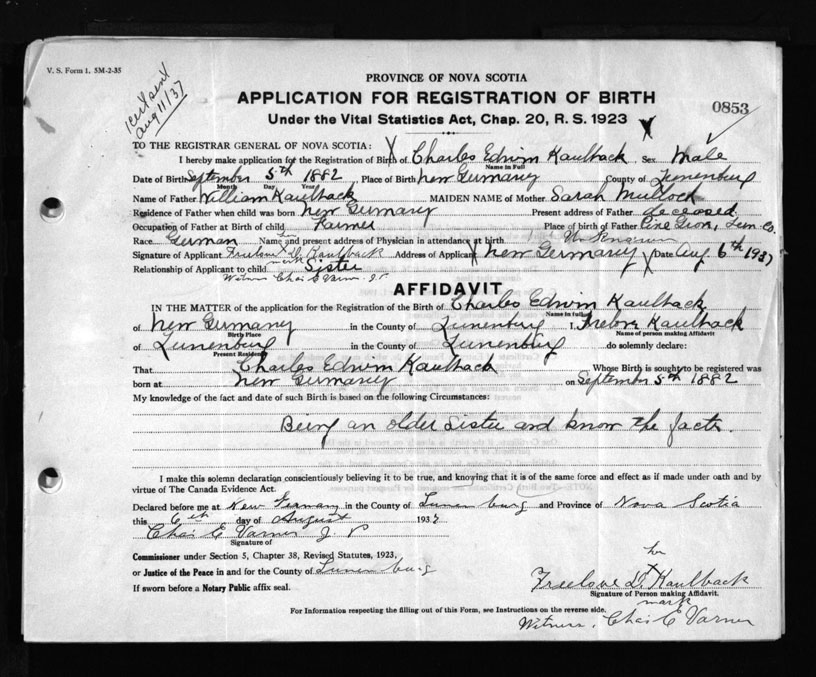 V. S. Form 1. 5M-2-35
Aug 11/37
PROVINCE OF NOVA SCOTIA
APPLICATION FOR REGISTRATION OF BIRTH
0853
Under the Vital Statistics Act, Chap. 20, R. S. 1923 X
TO THE REGISTRAR GENERAL OF NOVA SCOTIA:
I hereby make application for the Registration of Birth of Charles Edwin Kaulback Sex Male
Name in Full
Date of Birth September 5th 1882 Place of Birth New Germany County of Lunenburg
Month Day Year
Name of Father William Kaulback MAIDEN NAME of Mother Sarah Mullock
Residence of Father when child was born New Germany Present address of Father deceased
Occupation of Father at Birth of child Farmer Place of birth of Father Lun. Co.
Race German Name and present address of Physician in attendance at birth Unknown
Signature of Applicant Freelove D. Kaulback Address of Applicant New Germany Date Aug. 6th 1937
her X mark
Relationship of Applicant to child Sister
Witness Chas E Varner J.P
AFFIDAVIT
IN THE MATTER of the application for the Registration of the Birth of Charles Edwin Kaulback
Name in full
of New Germany in the County of Lunenburg I, Kaulback
Birth Place Name of person making Affidavit
of Lunenburg in the County of Lunenburg do solemnly declare:
Present Residence
That Charles Edwin Kaulback Whose Birth is sought to be registered was
born at New Germany on September 5th 1882
My knowledge of the fact and date of such Birth is based on the following Circumstances:
Being an older Sister and know the facts.
I make this solemn declaration conscientiously believing it to be true, and knowing that it is of the same force and effect as if made under oath and by
virtue of The Canada Evidence Act.
Declared before me at New Germany in the County of Lunenburg and Province of Nova Scotia
this 6th day of August 1937
Chas E Varner J P
Signature of
Commissioner under Section 5, Chapter 38, Revised Statutes, 1923,
or Justice of the Peace in and for the County of Lunenburg
If sworn before a Notary Public affix seal.
her
Freelove D. X Kaulback
Signature of Person making Affidavit.
mark
For Information respecting the filling out of this Form, see Instructions on the reverse side.
Witness. Chas E Varner